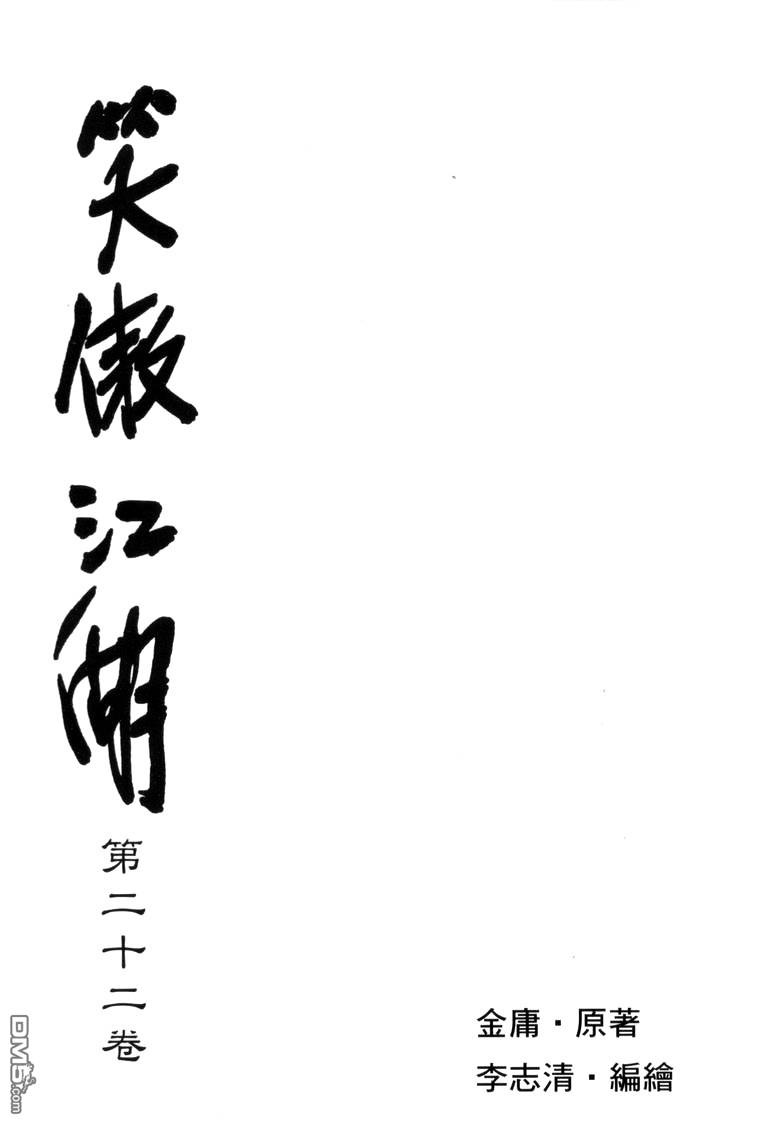 笑傲江湖
第二十二卷
金庸·原著
李志清·編繪
DM5.com